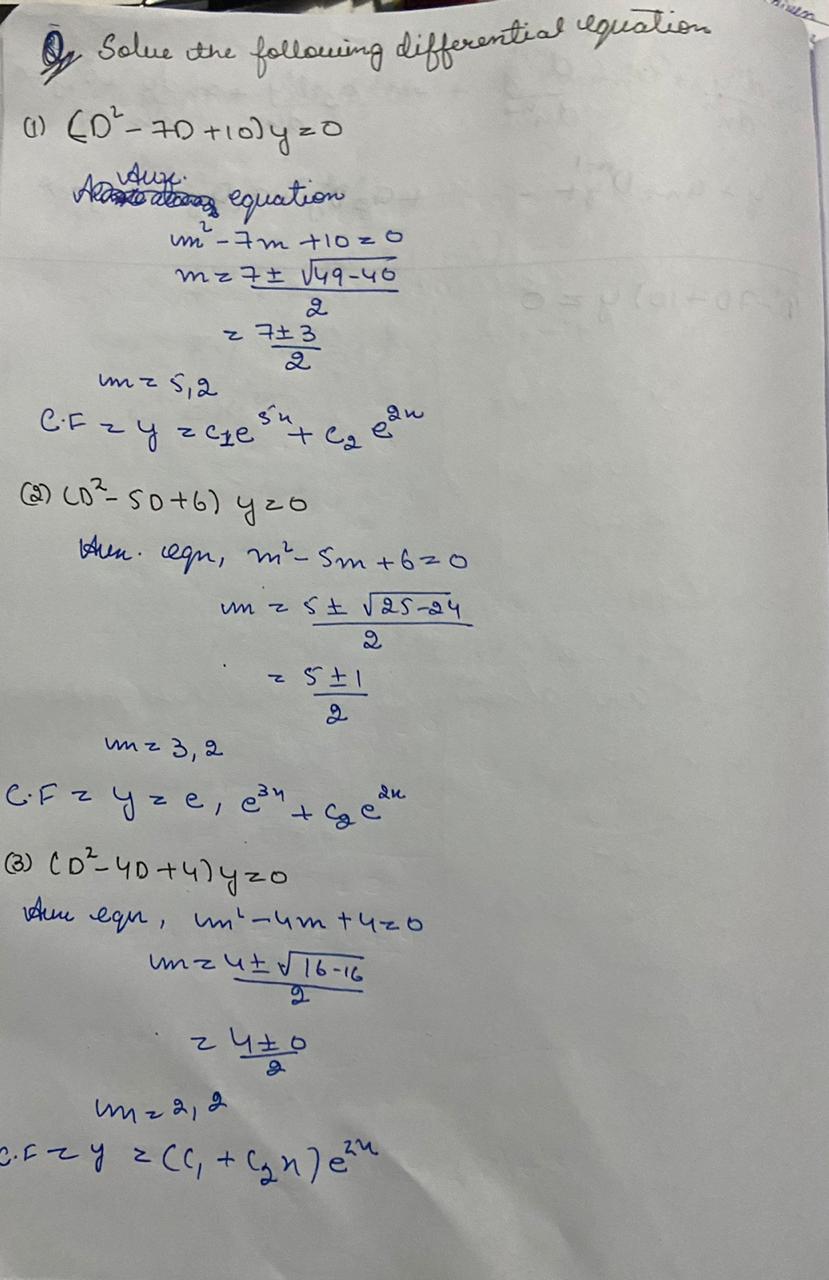 Q Solve the following differential equation
(1) (D² - 7D + 10) y = 0
Aux. equation
m² - 7m + 10 = 0
m = 7 ± √49-40
2
= 7 ± 3
2
m = 5, 2
C.F = y = c₁e⁵ˣ + c₂ e²ˣ
(2) (D² - 5D + 6) y = 0
Aux. eqn, m² - 5m + 6 = 0
m = 5 ± √25-24
2
= 5 ± 1
2
m = 3, 2
C.F = y = c, e³ˣ + c₂ e²ˣ
(3) (D² - 4D + 4) y = 0
Aux eqn, m² - 4m + 4 = 0
m = 4 ± √16-16
2
= 4 ± 0
2
m = 2, 2
C.F = y = (C₁ + C₂x) e²ˣ